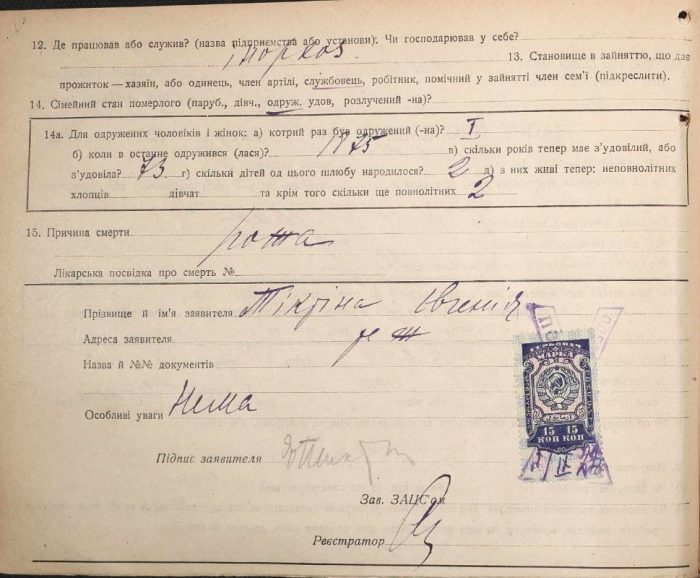 12. Де працював або служив? (назва підприємства або установи). Чи господарював у себе?
13. Становище в зайняттю, що дає
прожиток — хазяїн, або одинець, член артілі, службовець, робітник, помічний у зайнятті член сем'ї (підкреслити).
14. Сімейний стан померлого (паруб., дівч., одруж. удов, розлучений -на)?
14а. Для одружених чоловіків і жінок: а) котрий раз був одружений (-на)? I
б) коли в останнє одружився (лася)? 1875 в) скільки років тепер має з'удовілий, або
з'удовіла? 73 г) скільки дітей од цього шлюбу народилося? 2 д) з них живі тепер: неповнолітних
хлопців дівчат та крім того скільки ще повнолітних 2
15. Причина смерти рожа
Лікарська посвідка про смерть №
Прізвище й ім'я заявителя Євгенія
Адреса заявителя
Назва й №№ документів
Особливі уваги Нема
Підпис заявителя
ГЕРБОВАЯ
МАРКА
15 15
КОП КОП
Зав. ЗАЦС'ом
Реєстратор